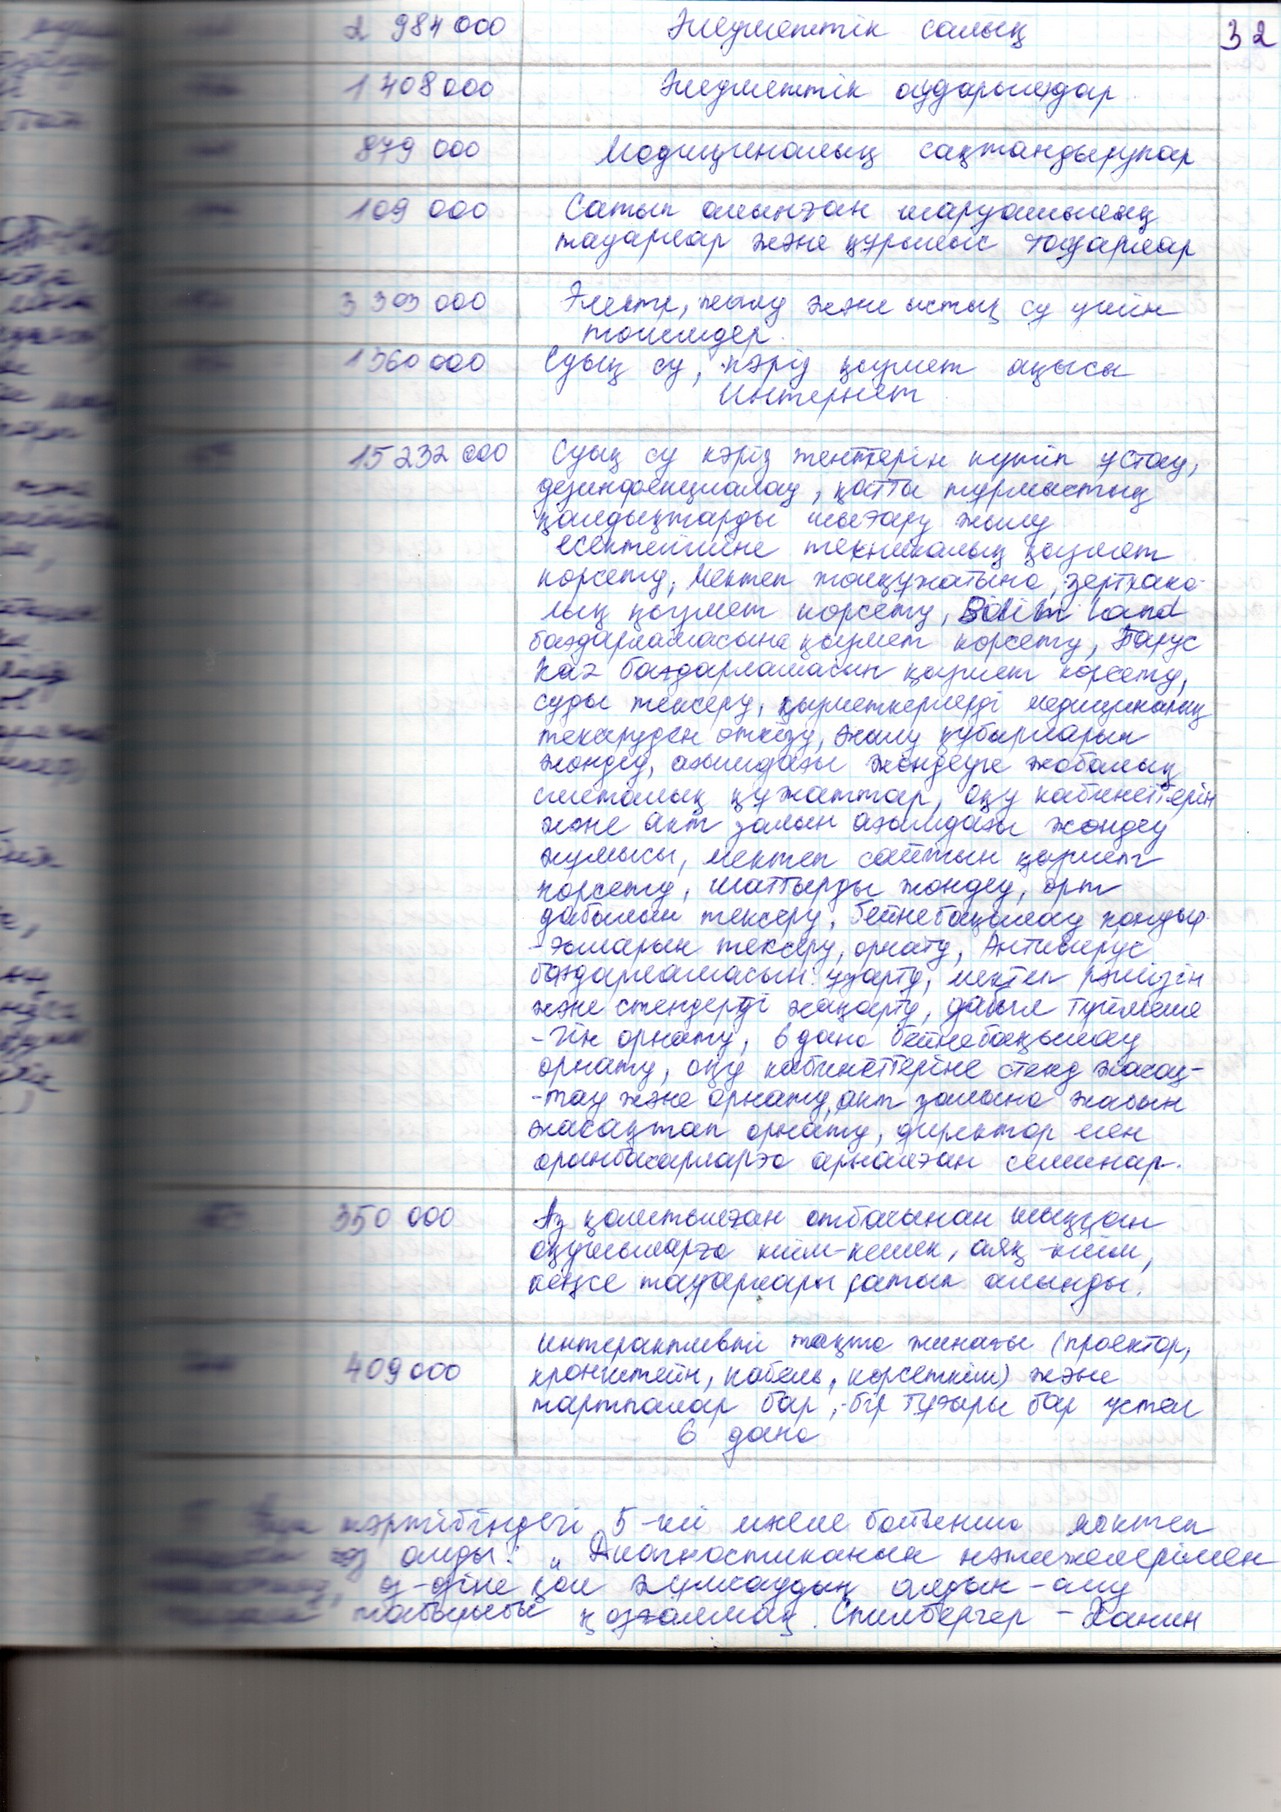 32
2 984 000 Әлеуметтік салық
1 408 000 Әлеуметтік аударымдар
879 000 Медициналық сақтандырулар
109 000 Сатып алынған шаруашылық
тауарлар және құрылыс тауарлар
3 303 000 Электр, жылу және ыстық су үшін
төлемдер.
1 360 000 Суық су, кәріз қызмет ақысы
Интернет
15 232 000 Суық су кәріз желілерін күтіп ұстау,
дезинфекциялау, қатты тұрмыстық
қалдықтарды шығару жылу
есептегішіне техникалық қызмет
көрсету, мектеп асханасына, зертхана-
лық қызмет көрсету, Bilim Land
бағдарламасына қызмет көрсету, Парус
Каз бағдарламасын қызмет көрсету,
суды тексеру, қызметкерлерді медициналық
тексеруден өткізу, жылу құбырларын
жөндеу, ағымдағы жөндеуге жобалық
сметалық құжаттар, оқу кабинеттерін
және акт залын ағымдағы жөндеу
жұмысы, мектеп сайтын қызмет
көрсету, шатырды жөндеу, өрт
дабылын тексеру, бейнебақылау қондыр-
-ғыларын тексеру, орнату, Антивирус
бағдарламасын ұзарту, мектеп рәмізін
және стендерді жаңарту, дабыл түймеше
-гін орнату, 6 дана бейнебақылау
орнату, оқу кабинеттеріне стенд жасақ-
-тау және орнату, акт залына жалын
жасақтап орнату, директор мен
орынбасарларға арналған семинар.
350 000 Аз қамтылған отбасынан шыққан
оқушыларға киім-кешек, аяқ-киім,
кеңсе тауарлары сатып алынды.
409 000 Интерактивті тақта жинағы (проектор,
кронштейн, кабель, көрсеткіш) және
тартпалар бар, бір тумбары бар үстел
6 дана
Күн тәртібіндегі 5-ші мәселе бойынша мектеп
сөз алды: „ Диагностиканың нәтижелерімен
өз-өзіне қол жұмсаудың алдын-алу
тақырыбы қозғалмақ. Спилбергер - Ханин